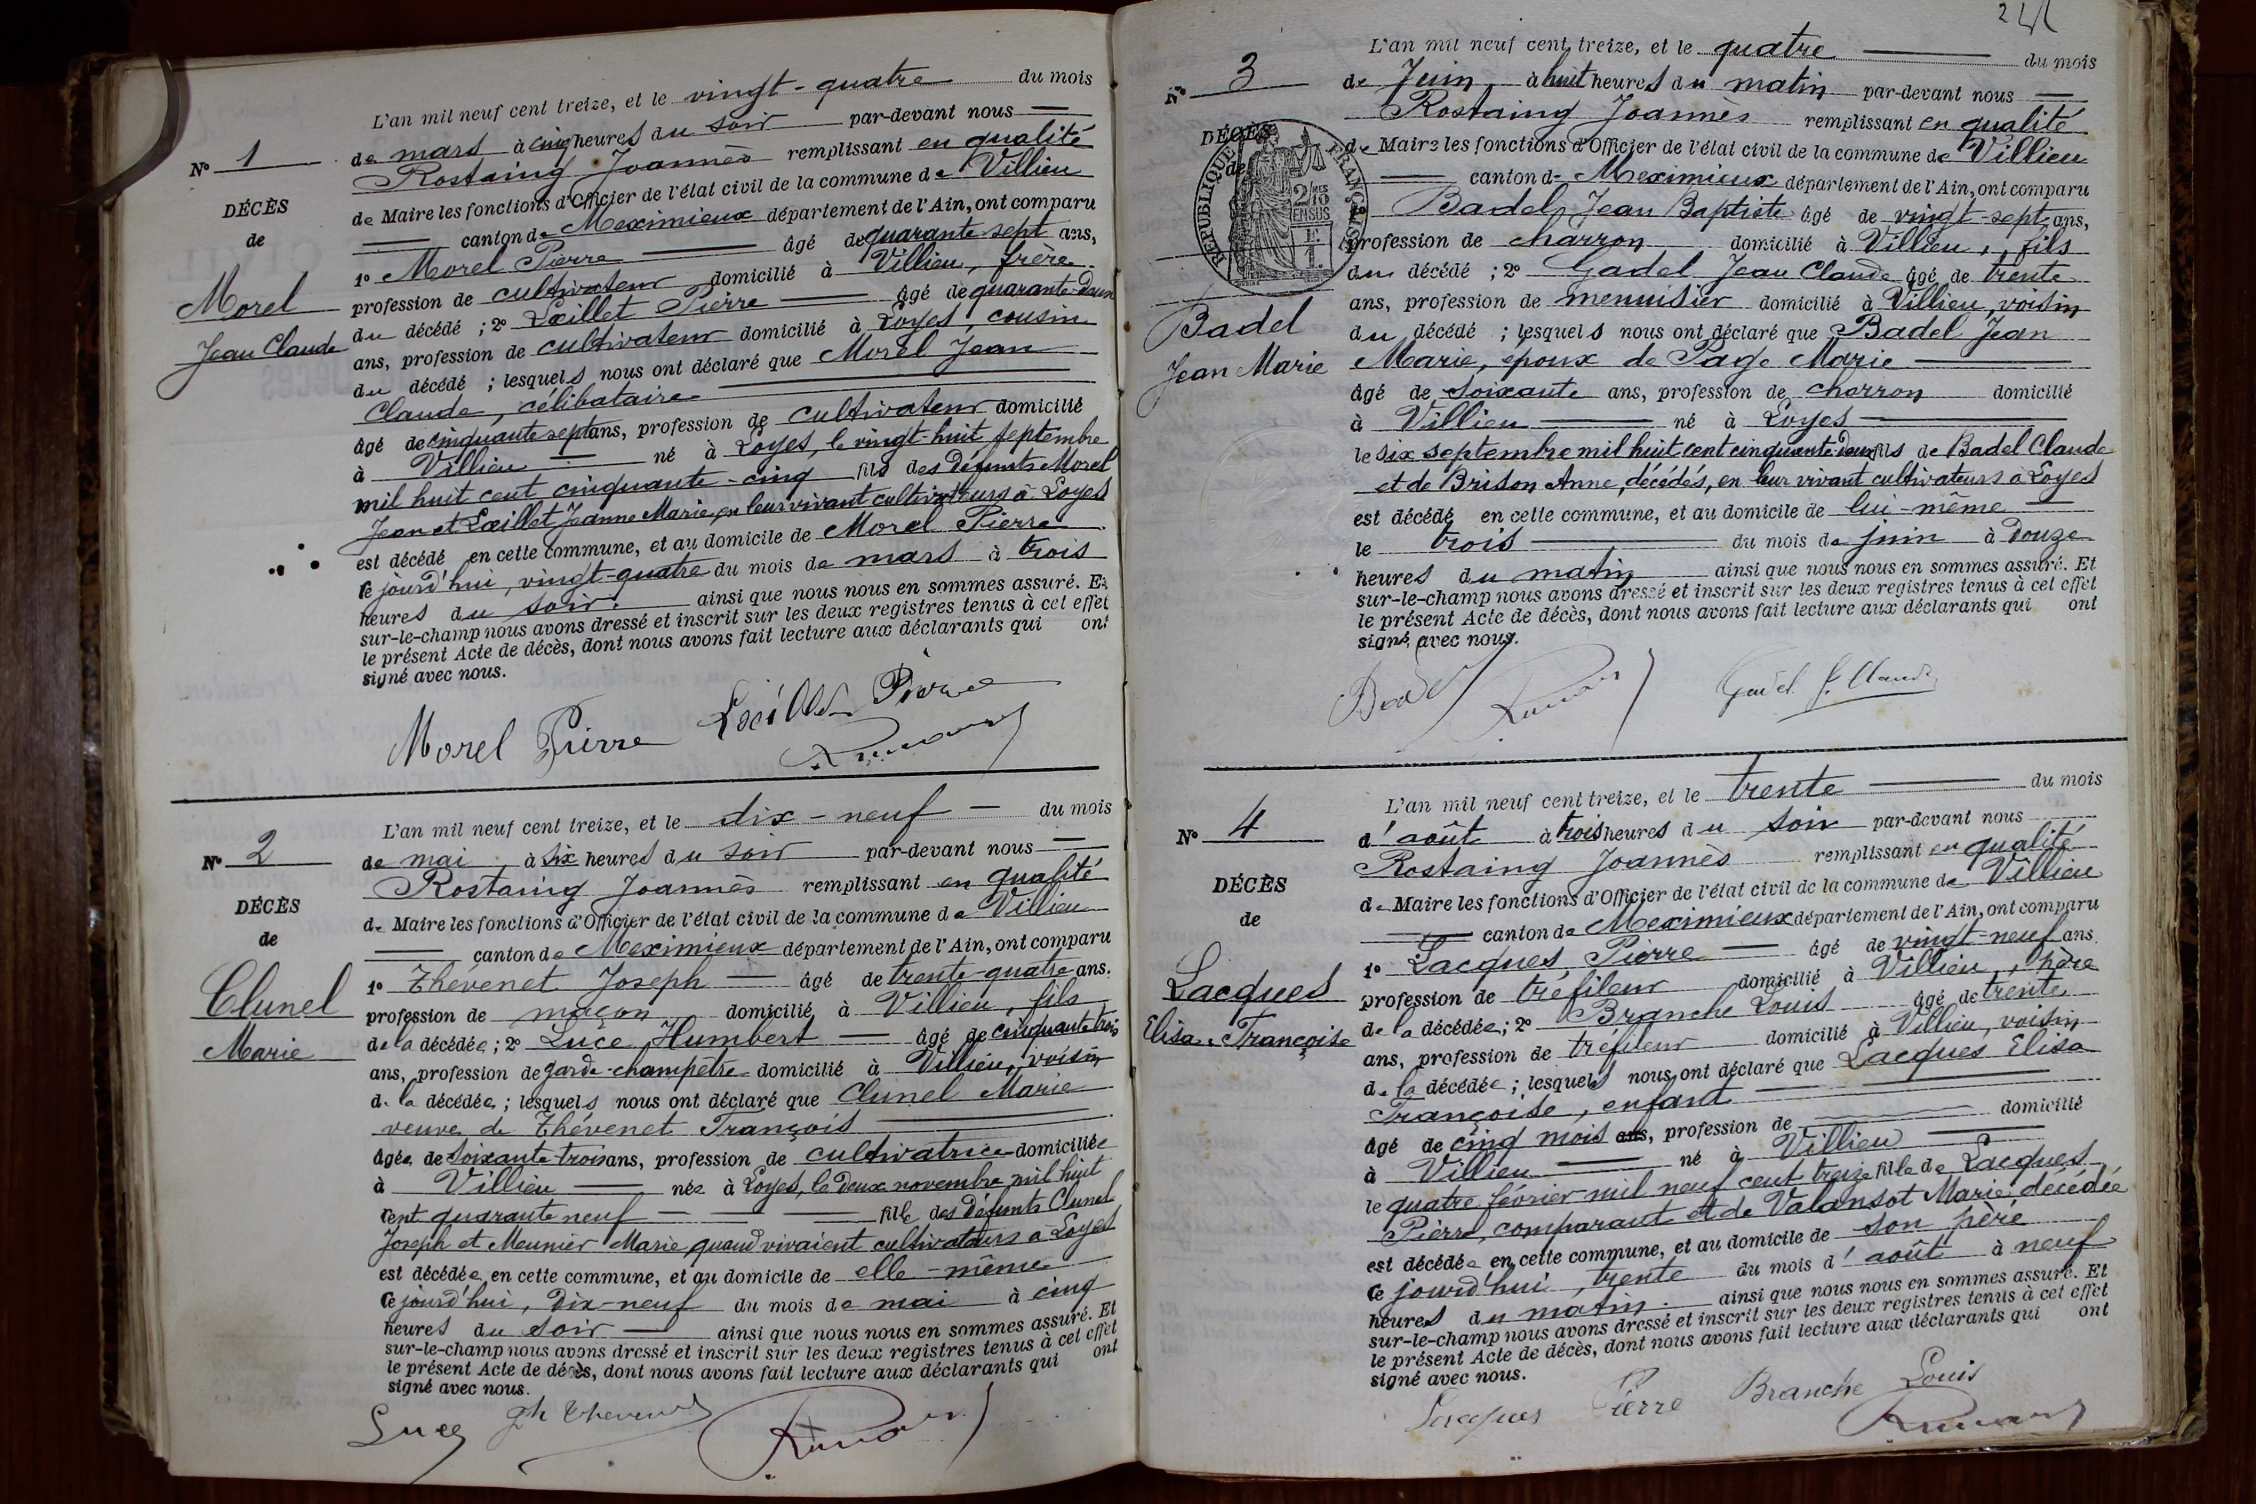 L'an mil neuf cent treize, et le vingt-quatre du mois
de mars à cinq heures du soir par-devant nous
Rostaing Joannès remplissant en qualité
de Maire les fonctions d'Officier de l'état civil de la commune de Villieu
canton de Meximieux département de l'Ain, ont comparu
1º Morel Pierre âgé de quarante sept ans,
profession de cultivateur domicilié à Villieu, frère
du décédé ; 2º Lœillet Pierre âgé de quarante-deux
ans, profession de cultivateur domicilié à Loyes, cousin
du décédé ; lesquels nous ont déclaré que Morel Jean
Claude, célibataire
âgé de cinquante sept ans, profession de cultivateur domicilié
à Villieu né à Loyes, le vingt-huit septembre
mil huit cent cinquante-cinq fils des défunts Morel
Jean et Lœillet Jeanne Marie, en leur vivant cultivateurs à Loyes
est décédé en cette commune, et au domicile de Morel Pierre
ce jourd'hui, vingt-quatre du mois de mars à trois
heures du soir. ainsi que nous nous en sommes assuré. Et
sur-le-champ nous avons dressé et inscrit sur les deux registres tenus à cet effet
le présent Acte de décès, dont nous avons fait lecture aux déclarants qui ont
signé avec nous.
Nº 1
DÉCÈS
de
Morel
Jean Claude
Morel Pierre Lœillet Pierre
L'an mil neuf cent treize, et le dix-neuf du mois
de mai, à six heures du soir par-devant nous
Rostaing Joannès remplissant en qualité
de Maire les fonctions d'Officier de l'état civil de la commune de Villieu
canton de Meximieux département de l'Ain, ont comparu
1º Thévenet Joseph âgé de trente-quatre ans.
profession de maçon domicilié à Villieu, fils
de la décédée ; 2º Luce Humbert âgé de cinquante trois
ans, profession de garde-champêtre domicilié à Villieu, voisin
de la décédée ; lesquels nous ont déclaré que Clunel Marie
veuve de Thévenet François
âgée de soixante-trois ans, profession de cultivatrice domiciliée
à Villieu née à Loyes, le deux novembre mil huit
cent quarante neuf fille des défunts Clunel
Joseph et Meunier Marie, quand vivaient cultivateurs à Loyes
est décédée en cette commune, et au domicile de elle-même
ce jourd'hui, dix-neuf du mois de mai à cinq
heures du soir ainsi que nous nous en sommes assuré. Et
sur-le-champ nous avons dressé et inscrit sur les deux registres tenus à cet effet
le présent Acte de décès, dont nous avons fait lecture aux déclarants qui ont
signé avec nous.
Nº 2
DÉCÈS
de
Clunel
Marie
Luce Jh Thevenet
L'an mil neuf cent treize, et le quatre du mois
de Juin à huit heures du matin par-devant nous
Rostaing Joannès remplissant en qualité
de Maire les fonctions d'Officier de l'état civil de la commune de Villieu
canton de Meximieux département de l'Ain, ont comparu
1º Badel Jean Baptiste âgé de vingt-sept ans,
profession de charron domicilié à Villieu, fils
du décédé ; 2º Gadel Jean Claude âgé de trente
ans, profession de menuisier domicilié à Villieu, voisin
du décédé ; lesquels nous ont déclaré que Badel Jean
Marie, époux de Page Marie
âgé de soixante ans, profession de charron domicilié
à Villieu né à Loyes
le six septembre mil huit cent cinquante deux fils de Badel Claude
et de Brison Anne, décédés, en leur vivant cultivateurs à Loyes
est décédé en cette commune, et au domicile de lui-même
le trois du mois de juin à douze
heures du matin ainsi que nous nous en sommes assuré. Et
sur-le-champ nous avons dressé et inscrit sur les deux registres tenus à cet effet
le présent Acte de décès, dont nous avons fait lecture aux déclarants qui ont
signé avec nous.
Nº 3
DÉCÈS
de
REPUBLIQUE FRANÇAISE
2/10 EN SUS
Badel
Jean Marie
Badel Gadel J. Claude
L'an mil neuf cent treize, et le trente du mois
d'août à trois heures du soir par-devant nous
Rostaing Joannès remplissant en qualité
de Maire les fonctions d'Officier de l'état civil de la commune de Villieu
canton de Meximieux département de l'Ain, ont comparu
1º Lacques Pierre âgé de vingt-neuf ans.
profession de tréfileur domicilié à Villieu, père
de la décédée ; 2º Branche Louis âgé de trente
ans, profession de tréfileur domicilié à Villieu, voisin
de la décédée ; lesquels nous ont déclaré que Lacques Elisa
Françoise, enfant
âgé de cinq mois ans, profession de domicilié
à Villieu né à Villieu
le quatre février mil neuf cent treize fille de Lacques
Pierre, comparant et de Valansot Marie, décédée
est décédée en cette commune, et au domicile de son père
ce jourd'hui, trente du mois d'août à neuf
heures du matin. ainsi que nous nous en sommes assuré. Et
sur-le-champ nous avons dressé et inscrit sur les deux registres tenus à cet effet
le présent Acte de décès, dont nous avons fait lecture aux déclarants qui ont
signé avec nous.
Nº 4
DÉCÈS
de
Lacques
Elisa. Françoise
Lacques Pierre Branche Louis